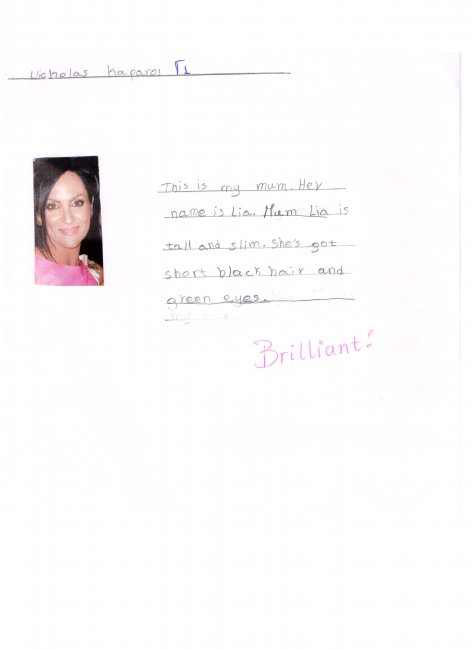 Nicholas Kaparos Γ1
This is my mum. Her
name is Lia. Mum Lia is
tall and slim. She's got
short black hair and
green eyes.
Brilliant!